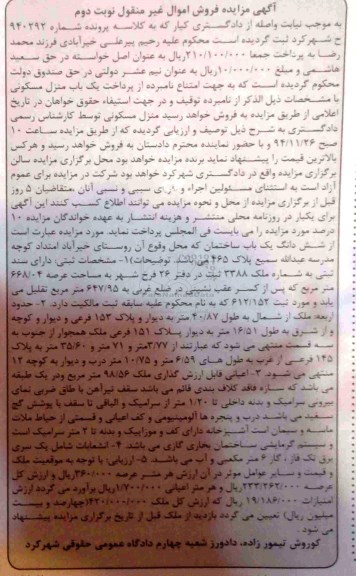 آگهی مزایده فروش اموال غیر منقول نوبت دوم
به موجب نیابت واصله از دادگستری کیار که به کلاسه پرونده شماره ۹۴۰۲۹۲
ح شهرکرد ثبت گردیده است محکوم علیه رحیم پیرعلی خیرآبادی فرزند محمد
رضا به پرداخت جمعا ۲۱۰/۱۰۰/۰۰۰ریال به عنوان اصل خواسته در حق سعید
هاشمی و مبلغ ۱۰/۰۰۰/۰۰۰ریال به عنوان نیم عشر دولتی در حق صندوق دولت
محکوم گردیده است که به جهت امتناع نامبرده از پرداخت یک باب منزل مسکونی
با مشخصات ذیل الذکر از نامبرده توقیف و در جهت استیفاء حقوق خواهان در تاریخ
اعلامی از طریق مزایده به فروش خواهد رسید منزل مسکونی توسط کارشناس رسمی
دادگستری به شرح ذیل توصیف و ارزیابی گردیده که از طریق مزایده ساعت ۱۰
صبح ۹۴/۱۱/۲۶ و با حضور نماینده محترم دادستان به فروش خواهد رسید و هرکس
بالاترین قیمت را پیشنهاد نماید برنده مزایده خواهد بود محل برگزاری مزایده سالن
برگزاری مزایده واقع در دادگستری شهرکرد خواهد بود شرکت در مزایده برای عموم
آزاد است به استثنای مسئولین اجراء و سببی و نسبی آنان متقاضیان ۵ روز
قبل از برگزاری مزایده از محل و نحوه مزایده می توانند اطلاع کسب کنند این آگهی
برای یکبار در روزنامه محلی منتشر و هزینه انتشار به عهده خواندگان مزایده ۱۰
درصد مورد مزایده را می بایست فی المجلس پرداخت نماید. مورد مزایده عبارت است
از شش دانگ یک باب ساختمان که محل وقوع آن روستای خیرآباد امتداد کوچه
مدرسه عبدالله سمیع پلاک ۴۶۵ توضیحات)۱- مشخصات ثبتی: دارای سند
ثبتی به شماره ملک ۲۳۸۸ ثبت در دفتر ۲۶ فرخ شهر به مساحت عرصه ۶۶۸/۰۴
متر مربع که پس از کسر عقب نشینی در ضلع غربی به ۶۴۷/۹۵ متر مربع تقلیل می
یابد و مورد ثبت ۶۱۲/۱۵۲ که به نام محکوم علیه سابقه ثبت مالکیت دارد. ۲- حدود
اربعه: ملک از شمال به طول ۴۰/۸۷ متر به دیوار و پلاک ۱۵۳ فرعی و دیوار و کوچه
و از شرق به طول ۱۶/۵۱ متر به دیوار پلاک ۱۵۱ فرعی ملک همجوار از جنوب به
سه قسمت منتهی می شود که عبارتند از ۳/۷۷متر و ۷۱ متر و ۳۵/۶۰ متر به پلاک
۱۴۵ فرعی از غرب به طول های ۶/۵۹ متر و ۱۰/۷۵ متر درب و دیوار به کوچه ۱۲
منتهی می شود. ۳- اعیانی قابل ارزش گذاری ملک ۹۸/۵۶ متر مربع ودر یک طبقه
می باشد که سازه فاقد کلاف بندی قائم می باشد سقف تیرآهن با طاق ضربی نمای
بیرونی سرامیک و بدنه داخلی تا ۱/۲۰ متر از سرامیک و الباقی تا سقف با پوشش گچ
سفید می باشد درب و پنجره ها آلومینیومی و کف اعیانی و قسمتی از حیاط ملات
ماسه و سیمان است آشپزخانه دارای کف و موزاییک و بدنه تا ۲ متر سرامیک است
و سیستم گرمایشی ساختمان بخاری گازی می باشد. ۴- انشعابات شامل یک سری
برق تک فاز ، گاز ۶ متر مکعبی و آب می باشد. ۵- ارزیابی: با توجه به موقعیت ملک
و قیمت و سایر عوامل موثر در آن ارزش هر متر عرصه ۳۶۰/۰۰۰ریال و ارزش کل
عرصه ۲۳۳/۲۶۲/۰۰۰ریال و هر متر اعیانی ۱/۷۰۰/۰۰۰ریال برآورد می گردد ارزش
امتیازات ۱۹/۱۸۶/۰۰۰ ریال که ارزش کل ملک ۴۲۰/۰۰۰/۰۰۰(چهارصد و بیست
میلیون ریال) تعیین می گردد بازدید از ملک قبل از تاریخ برگزاری مزایده پیشنهاد
می شود .
کوروش تیمور زاده، دادورز شعبه چهارم دادگاه عمومی حقوقی شهرکرد